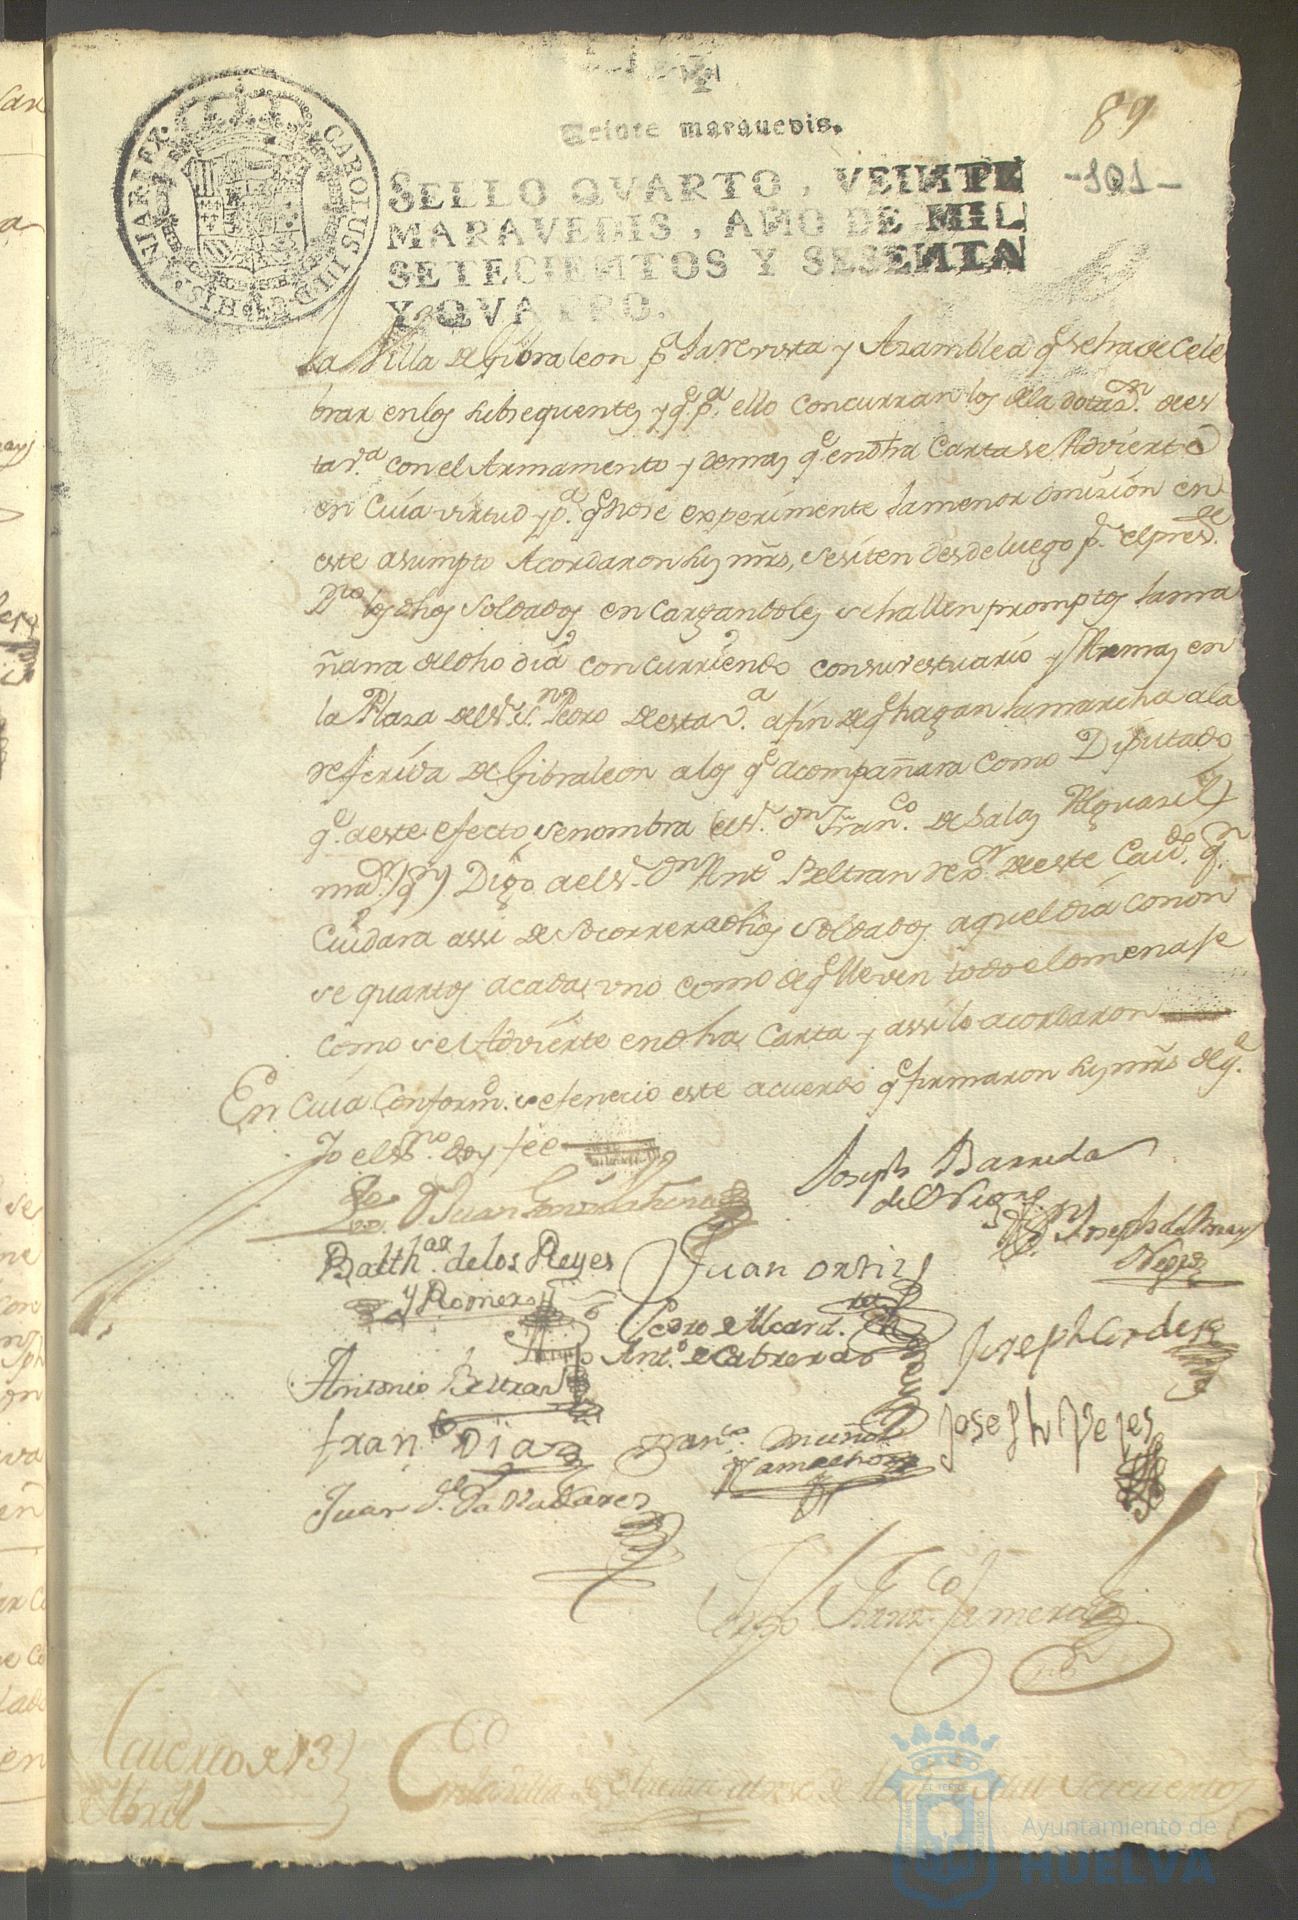 89
Veinte maravedis.
-101-
CAROLUS III D G HISPANIAR REX
SELLO QVARTO, VEINTE
MARAVEDIS, AÑO DE MIL
SETECIENTOS Y SESENTA
Y QVATRO.
la Villa de Gibraleon pa. la revista y Asamblea qe. se ha de cele
brar en los subsequentes y qe. pa. ello concurran los de la dotazn. de es
ta va. con el Armamento y demas qe. en dha Carta se Advierte
en Cuia virtud y pa. qe. no se experimente la menor omision en
este asumpto Acordaron sus mrs, se siten desde luego pr. el presde.
Dro los dhos Soldados encargandoles se hallen promptos la ma
ñana del dho dia concurriendo con su vestuario y Armas en
la Plaza del Sr. Sn. Pedro de esta va. a fin de qe. hagan la marcha a la
referida de Gibraleon a los qe. acompañara como Diputado
qe. a este efecto se nombra (el Sr. Dn Franco. de Salas Alguasil)
maor. (qn) Digo a el Sr. Dn Anto. Beltran rexor. de este Cavdo. qn.
Cuidara assi de socorrer a dhos soldados aquel dia con on
se quartos a cada uno como de qe. lleven todo el omenaje
como se Advierte en dha Carta y assi lo acordaron
En Cuia Conformd. se fenecio este acuerdo qe. firmaron sus mrs de qe.
Yo el Essno. doy fee
Dn Juan
Joseph Barreda
del
Joseph de
Negro
Balthar. de los Reyes
y Romero
Juan Ortiz
Pedro de
Anto. de Cabreras
Joseph Cordero
Antonio Beltran
Franco Diaz
Franco. Muñoz
Camacho
Joseph Yeves
Juan de Valladares
Franco.
Cavildo de 13
de Abril
En la villa de Huelva en trese de Abril de mill setecientos
Ayuntamiento de
HUELVA